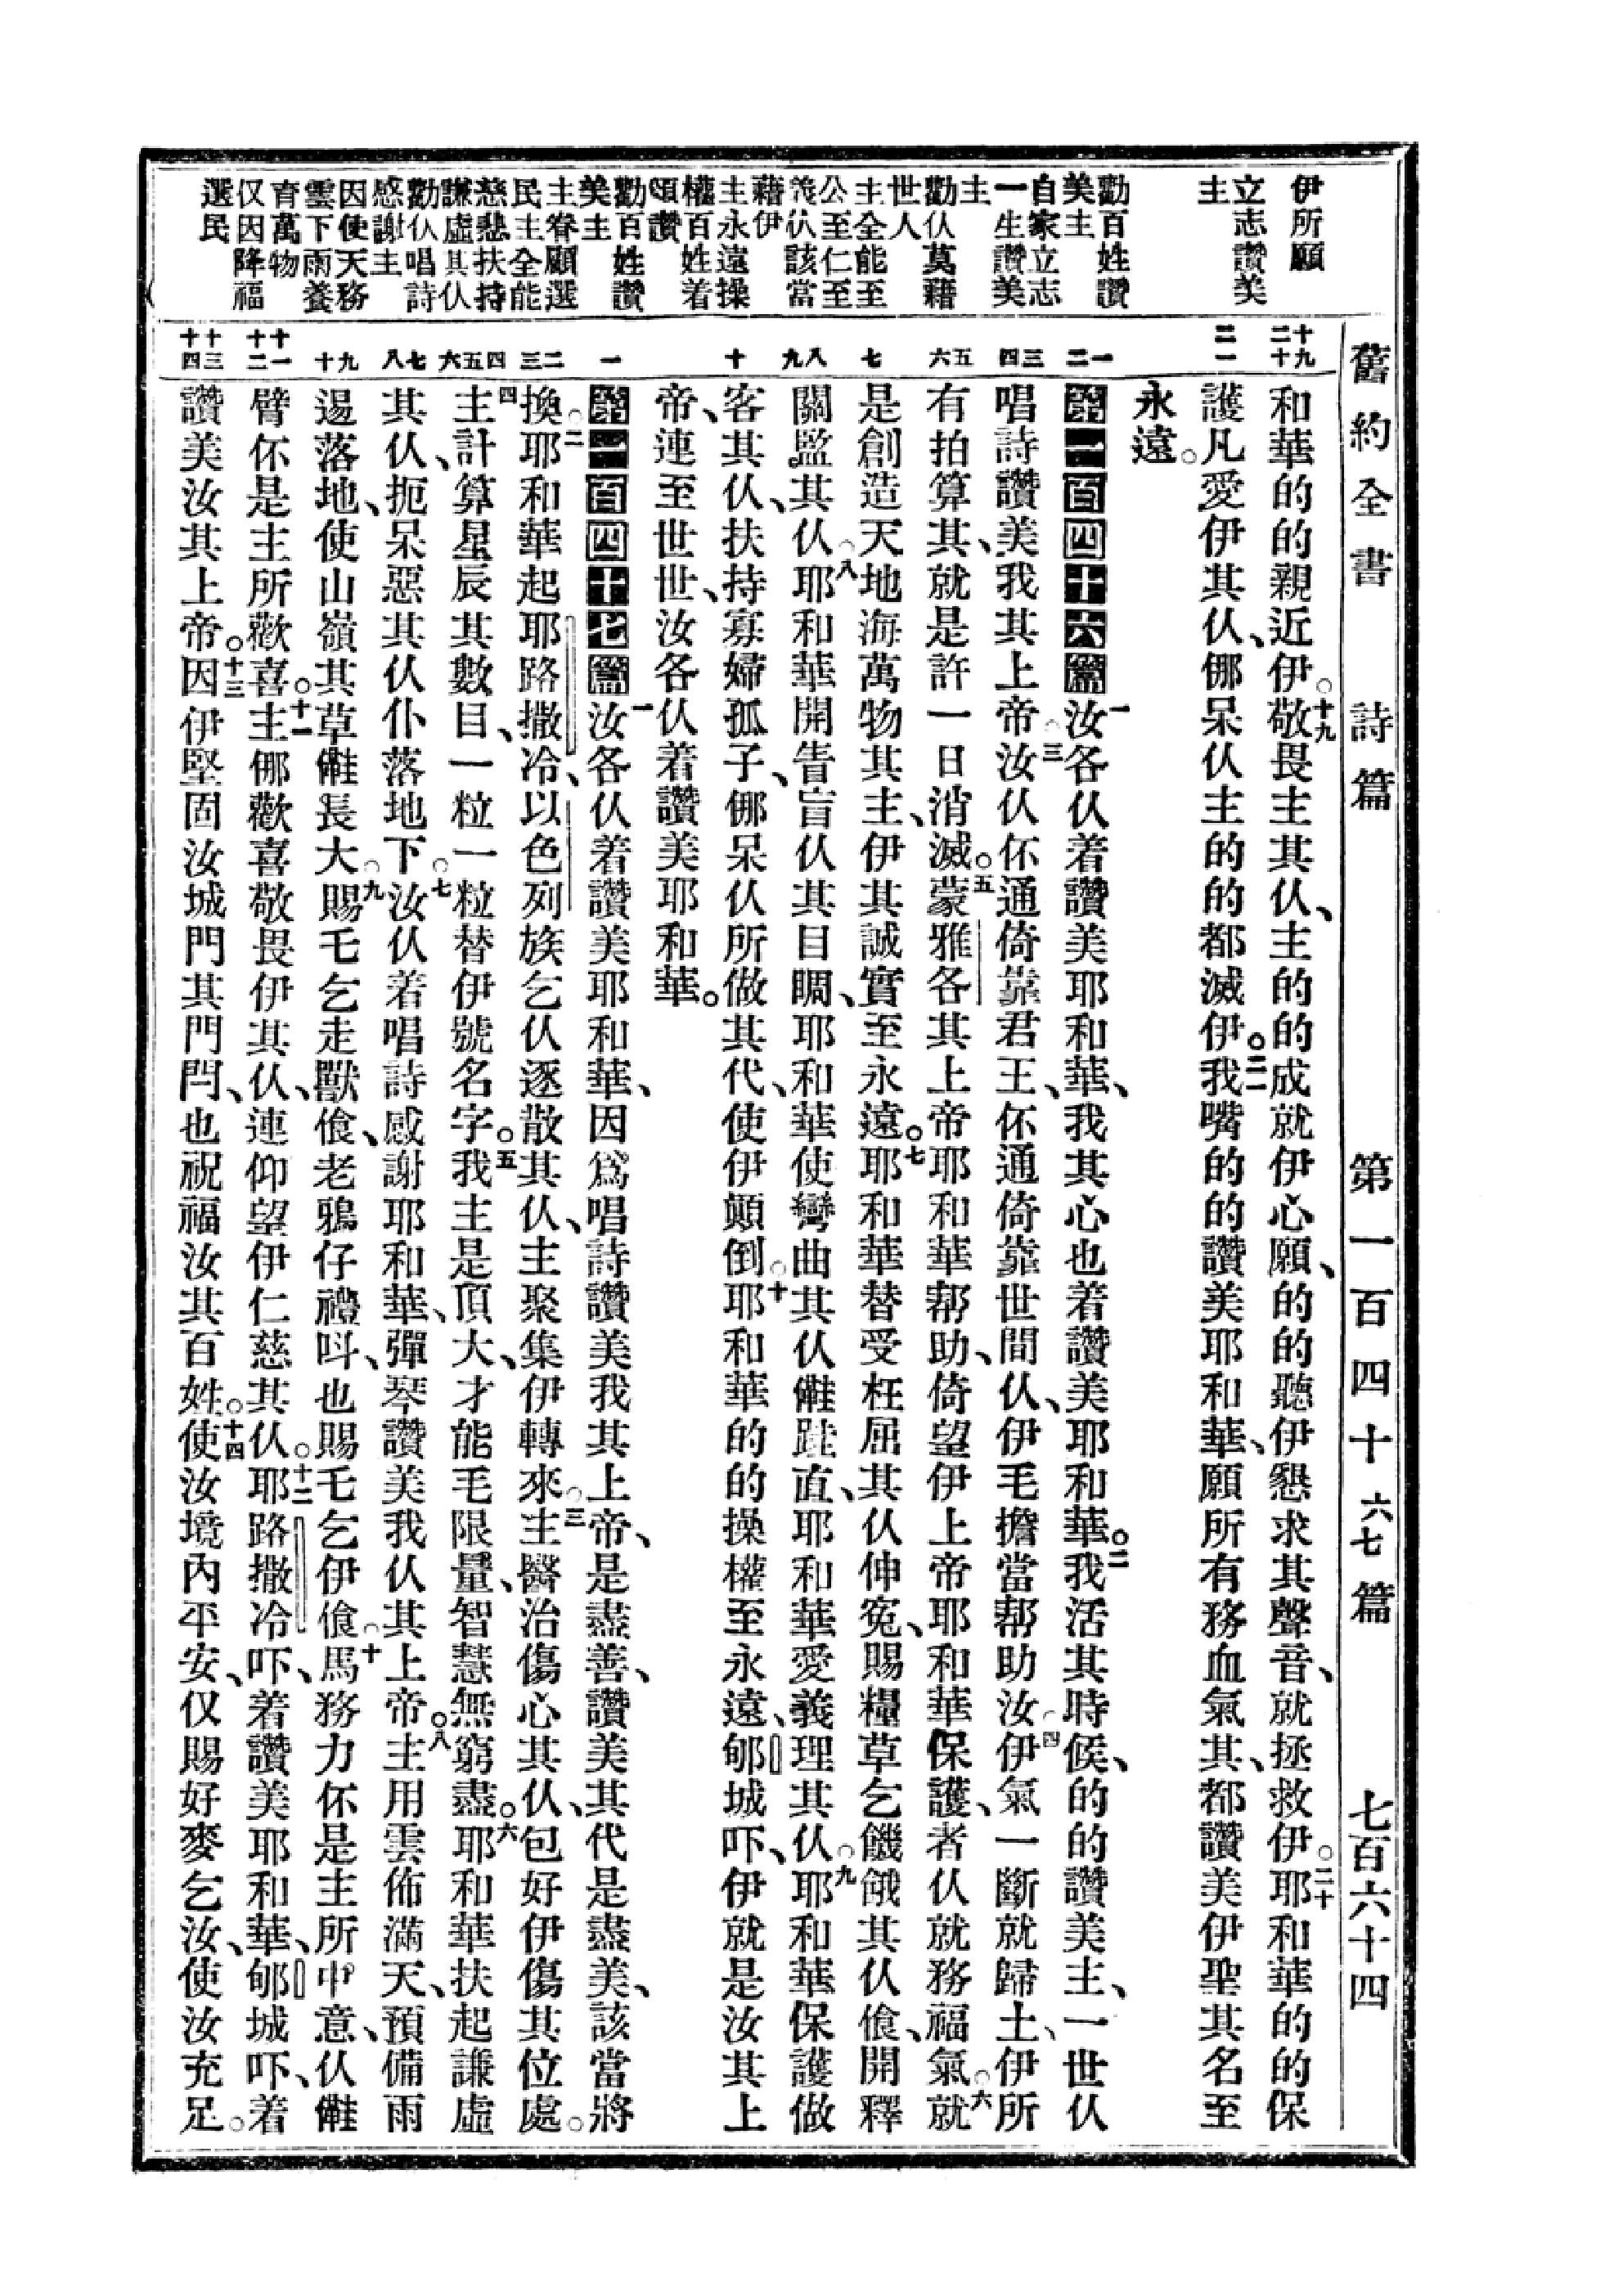 舊約全書　詩篇　第一百四十六七篇　七百六十四
伊所願
立志讚美
主
勸百姓讚
美主
自家立志
一生讚美
主
勸仈莫藉
世人
主全能至
公至仁至
義仈該當
藉伊
主永遠操
權百姓着
頌讚
勸百姓讚
美主
主眷顧選
民主全能
慈悲扶持
謙虛其仈
勸仈唱詩
感謝主
因使天務
雲下雨養
育萬物
仅因降福
選民
十九
二十
二一
一
二
三
四
五
六
七
八
九
十
一
二
三
四
五
六
七
八
九
十
十一
十二
十三
十四
和華的的親近伊。十九敬畏主其仈、主的的成就伊心願、的的聽伊懇求其聲音、就拯救伊。二十耶和華的的保
護凡愛伊其仈、㑚呆仈主的的都滅伊。二一我嘴的的讚美耶和華、願所有務血氣其、都讚美伊聖其名至
永遠。
第一百四十六篇 一汝各仈着讚美耶和華、我其心也着讚美耶和華。二我活其時候、的的讚美主、一世仈
唱詩讚美我其上帝。三汝仈伓通倚靠君王、伓通倚靠世間仈、伊毛擔當帮助汝。四伊氣一斷就歸土、伊所
有拍算其、就是許一日消滅。五蒙雅各其上帝耶和華帮助、倚望伊上帝耶和華保護、者仈就務福氣。六就
是創造天地海萬物其主、伊其誠實至永遠。七耶和華替受枉屈其仈伸寃、賜糧草乞饑餓其仈飧、開釋
關監其仈。八耶和華開眚盲仈其目睭、耶和華使彎曲其仈㒕跬直、耶和華愛義理其仈。九耶和華保護做
客其仈、扶持寡婦孤子、㑚呆仈所做其代、使伊顚倒。十耶和華的的操權至永遠、郇城吓、伊就是汝其上
帝、連至世世、汝各仈着讚美耶和華。
第一百四十七篇 一汝各仈着讚美耶和華、因爲唱詩讚美我其上帝、是盡善、讚美其代是盡美、該當將
換。二耶和華起耶路撒冷、以色列族乞仈逐散其仈、主聚集伊轉來。三主醫治傷心其仈、包好伊傷其位處。
四主計算星辰其數目、一粒一粒替伊號名字。五我主是頂大、才能毛限量、智慧無窮盡。六耶和華扶起謙虛
其仈、扼呆惡其仈仆落地下。七汝仈着唱詩感謝耶和華、彈琴讚美我仈其上帝。八主用雲佈滿天、預備雨
逿落地、使山嶺其草㒕長大。九賜乇乞走獸飧、老鴉仔禮呌、也賜乇乞伊飧。十馬務力伓是主所中意、仈㒕
臂伓是主所歡喜。十一主㑚歡喜敬畏伊其仈、連仰望伊仁慈其仈。十二耶路撒冷吓、着讚美耶和華、郇城吓、着
讚美汝其上帝。十三因伊堅固汝城門其門閂、也祝福汝其百姓。十四使汝境內平安、仅賜好麥乞汝、使汝充足。